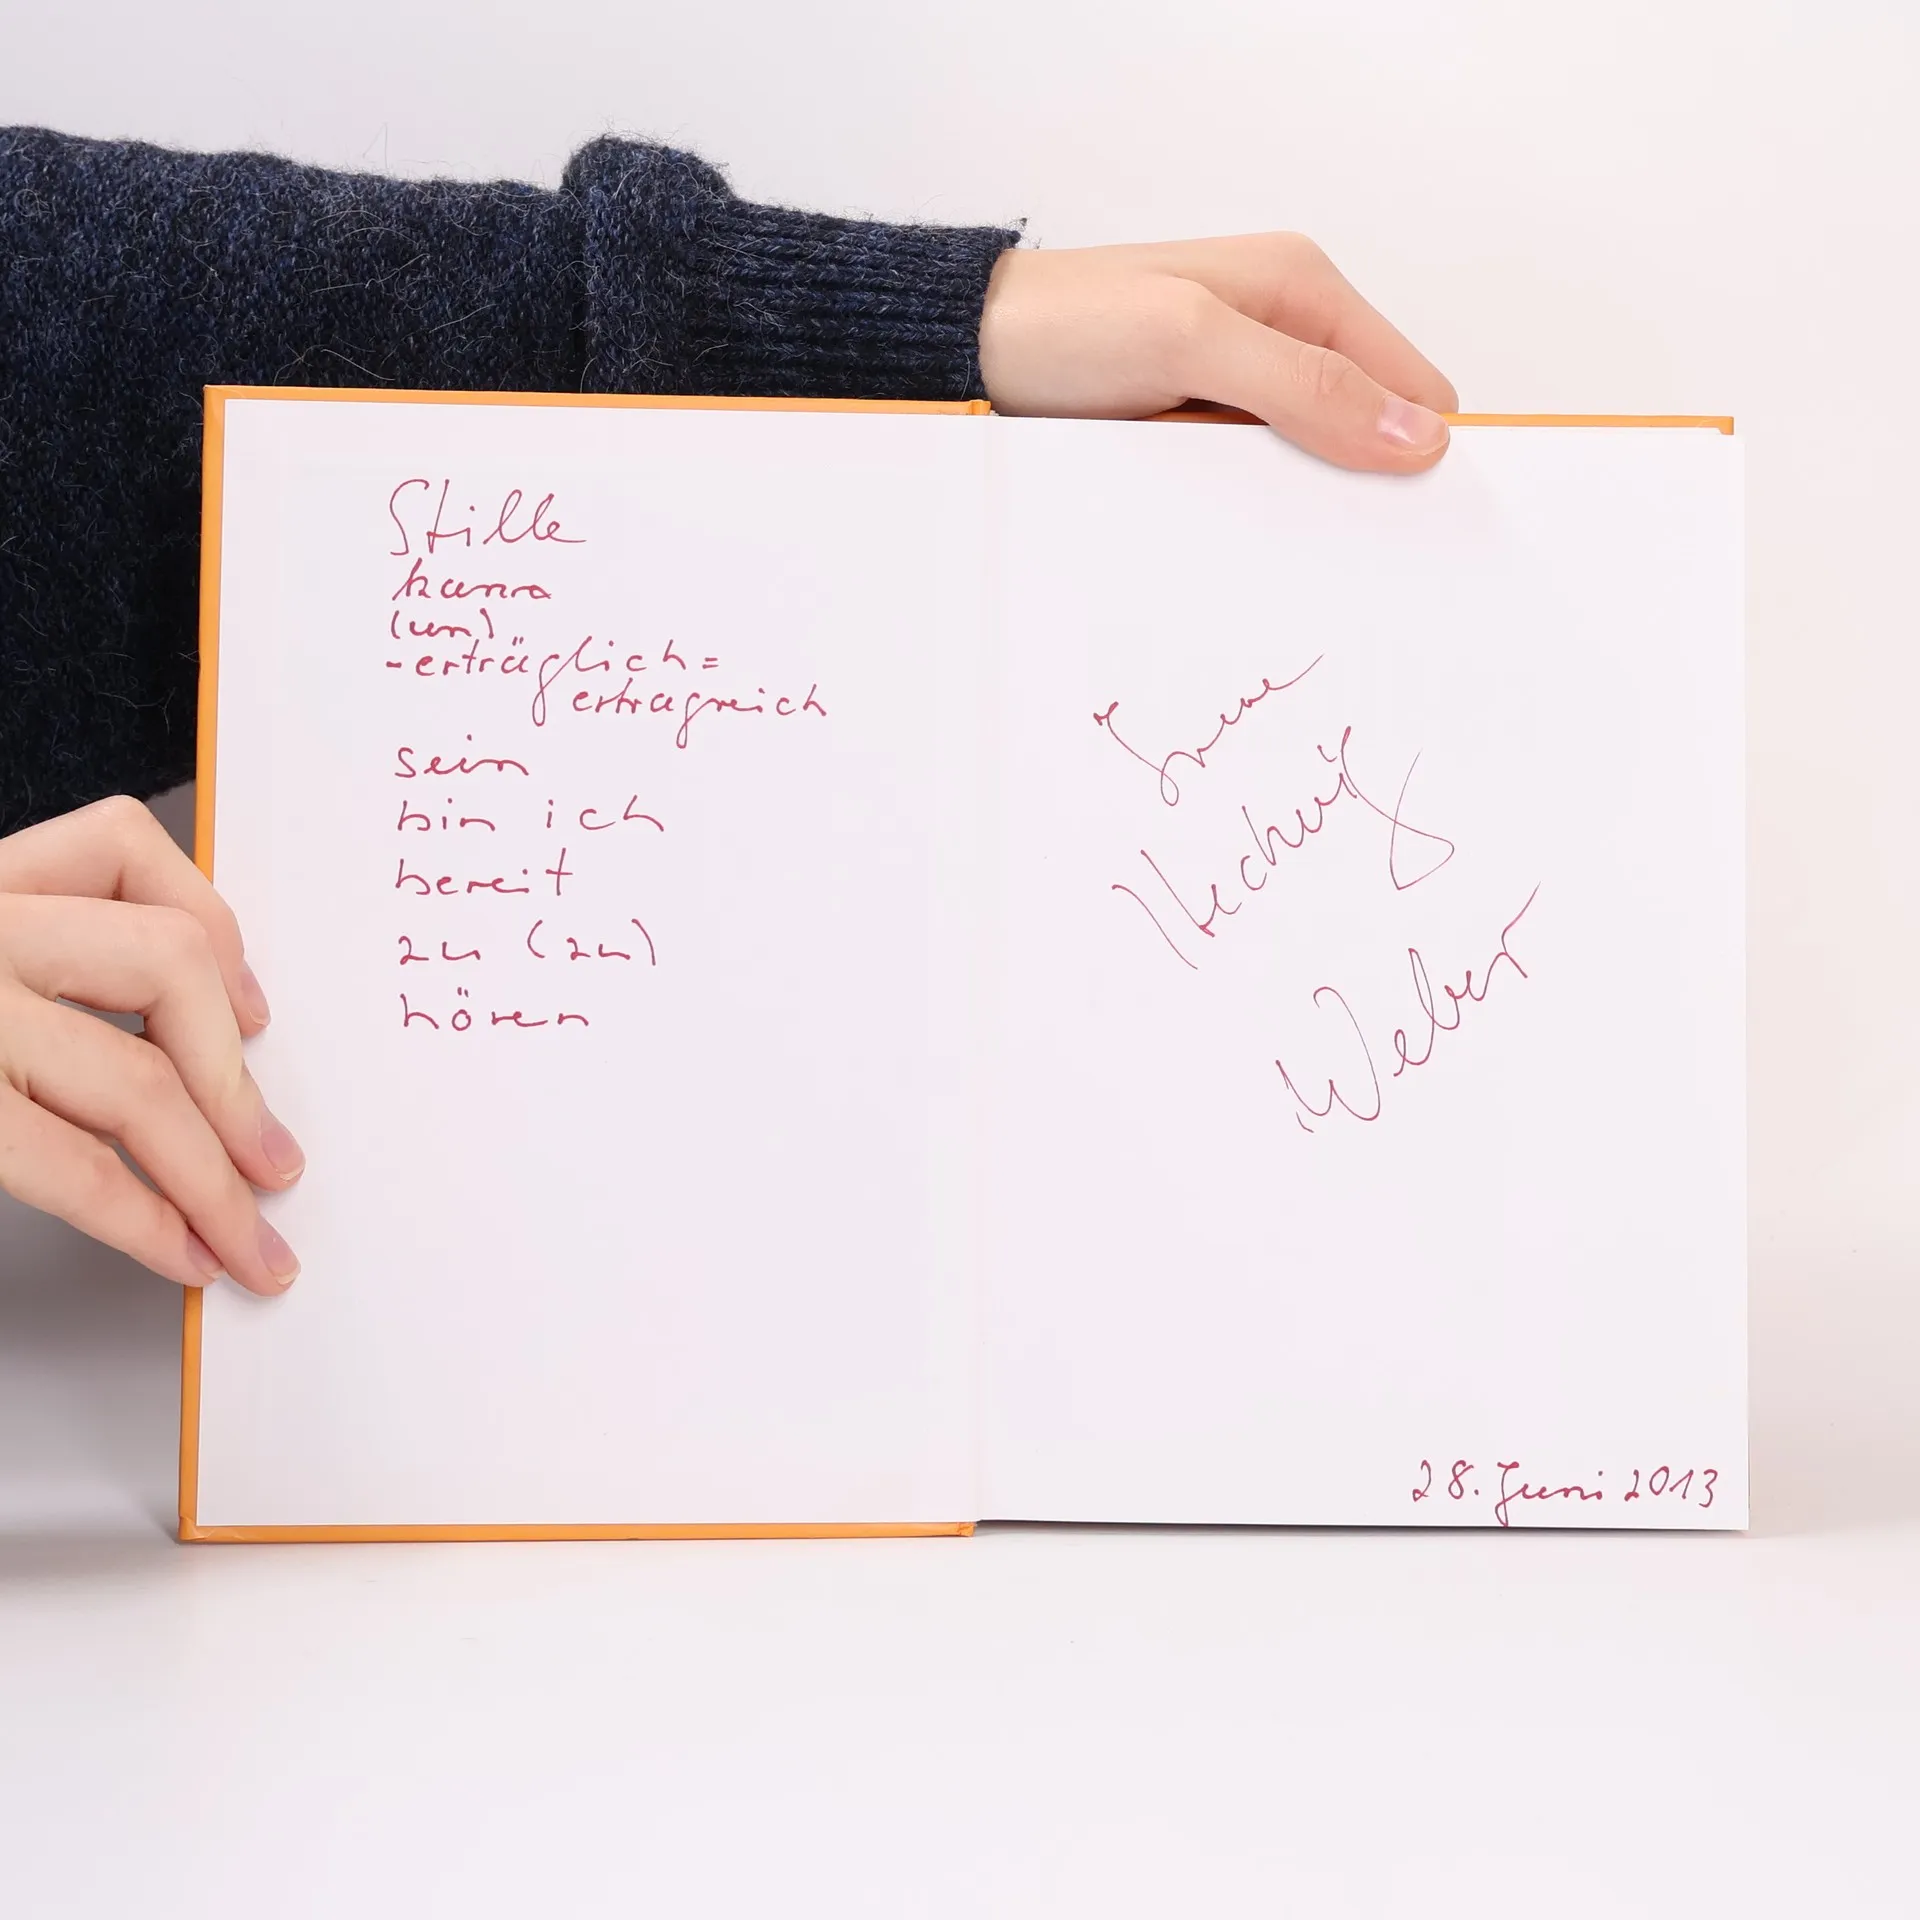 Stille
kann
(un)
-erträglich=
ertragreich
sein
bin ich
bereit
zu (zu)
hören
Hedwig
Weber
28. Juni 2013